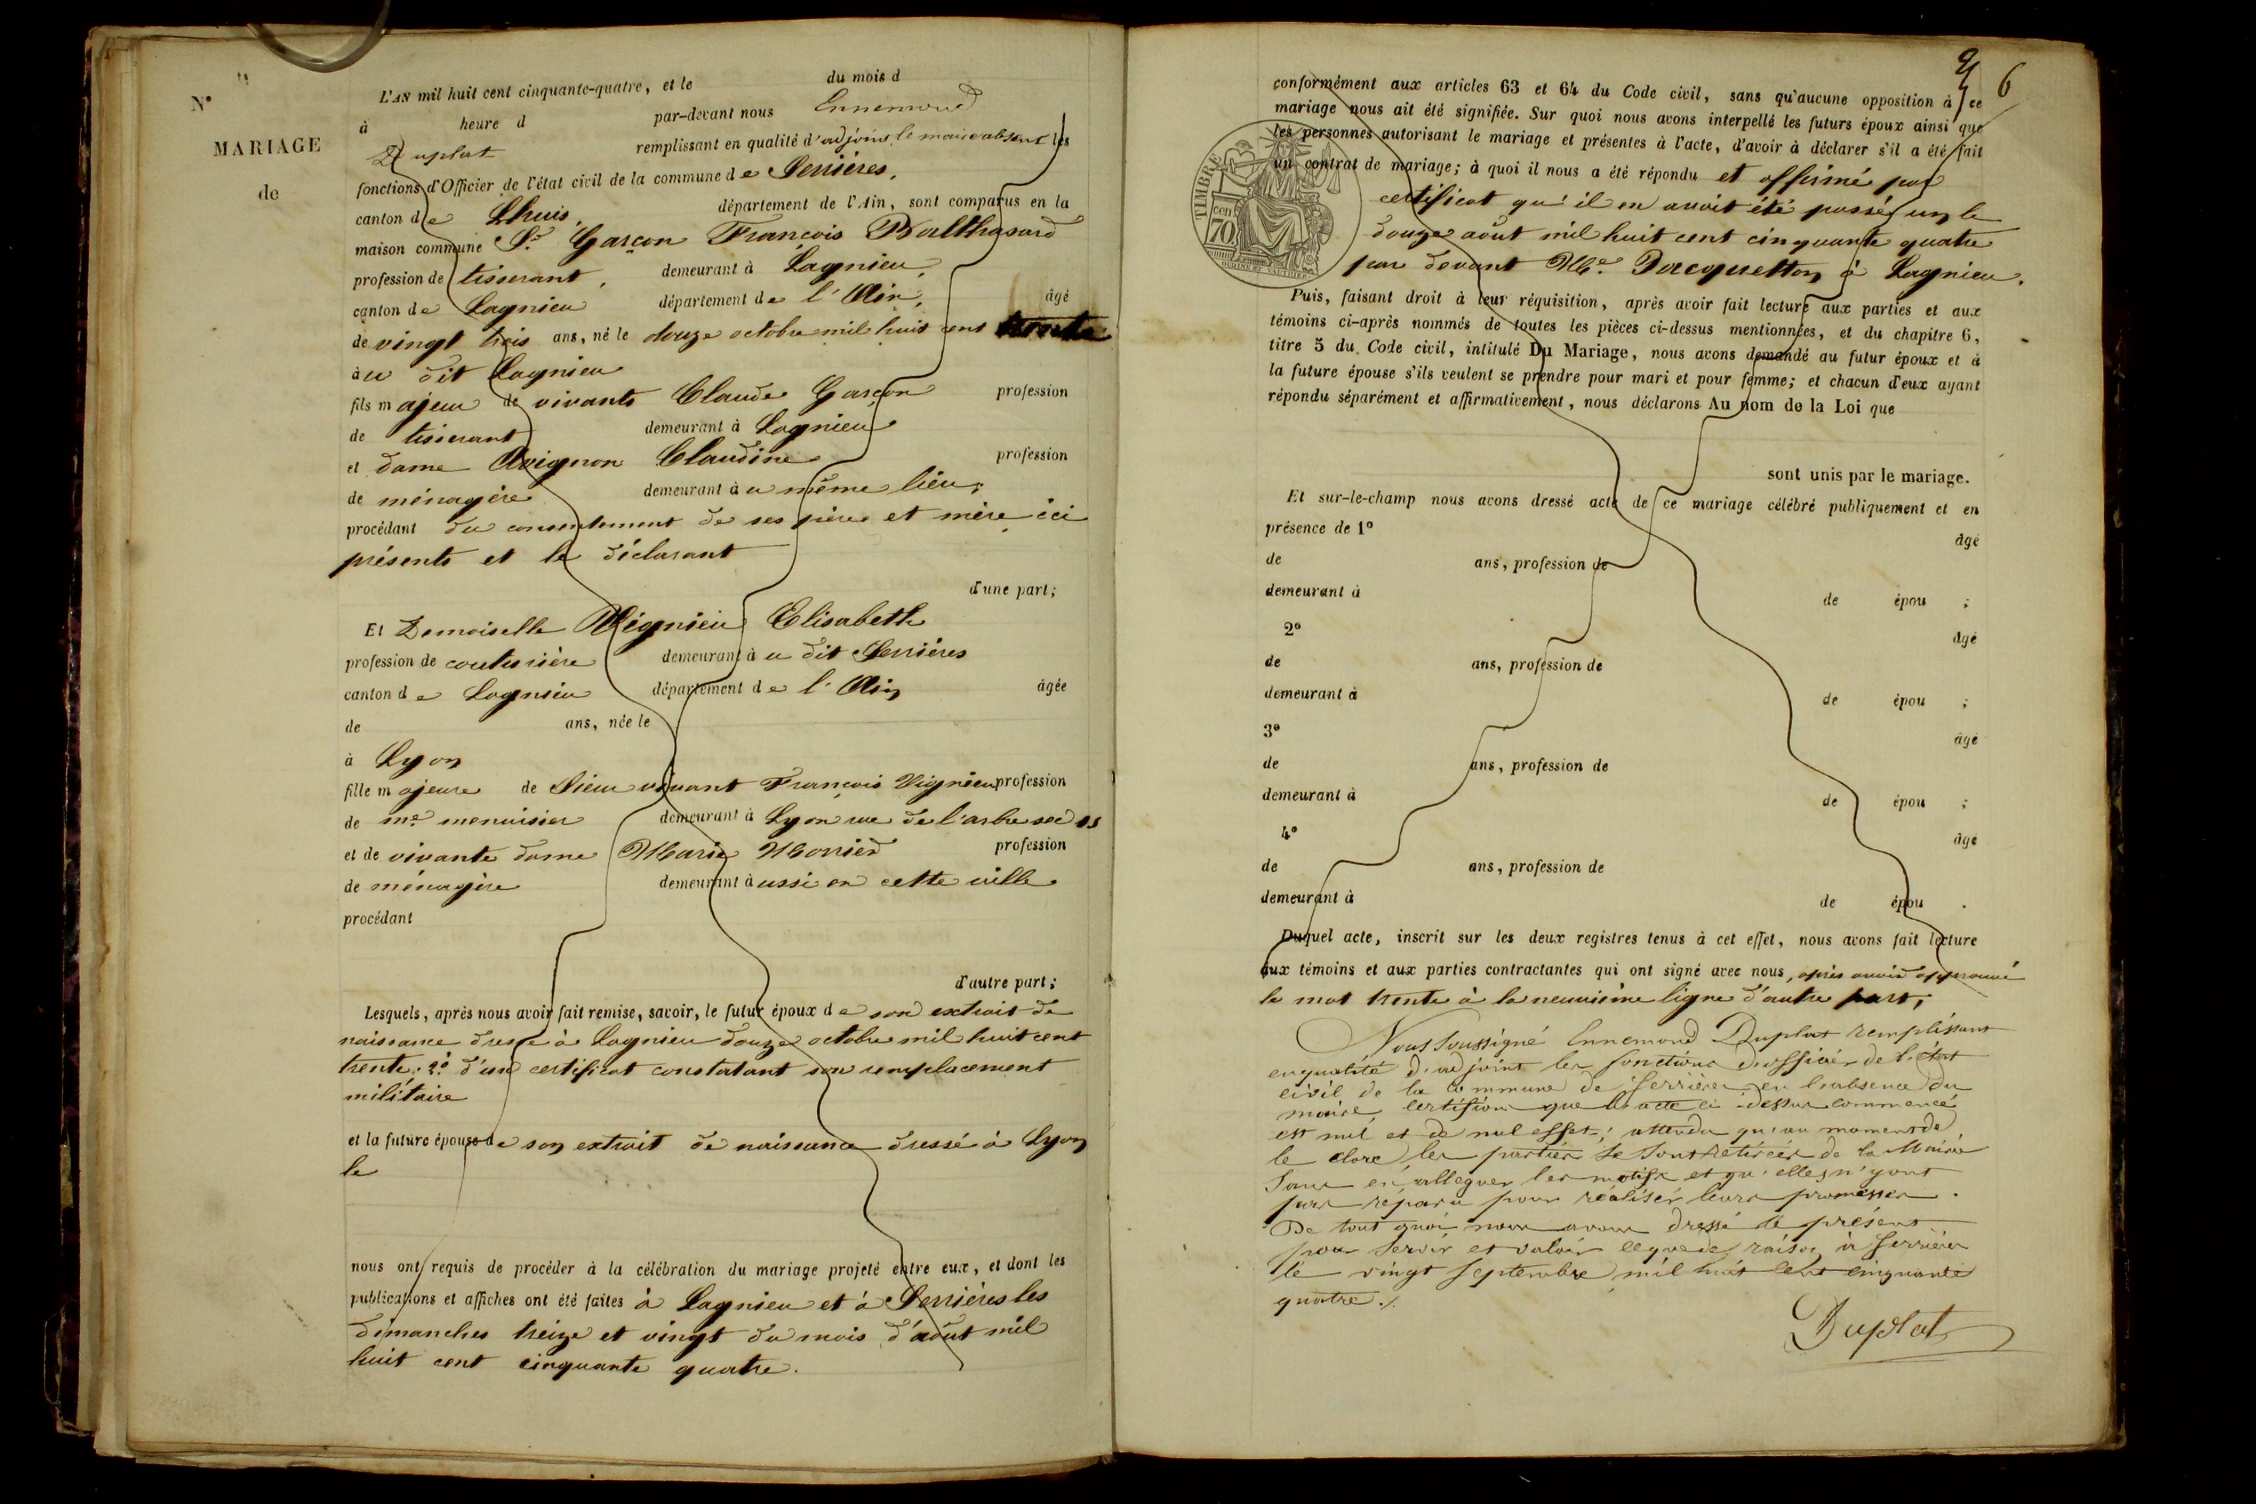 N°
MARIAGE
de
L'AN mil huit cent cinquante-quatre, et le du mois d
à heure d par-devant nous Ennemond
Duplat remplissant en qualité d'adjoint le maire absent les
fonctions d'Officier de l'état civil de la commune de Serrières,
canton de Lhuis, département de l'Ain, sont comparus en la
maison commune Sr Garçon François Balthasard
profession de tisserant, demeurant à Lagnieu,
canton de Lagnieu département de l'Ain, âgé
de vingt trois ans, né le douze octobre mil huit cent trente
au dit Lagnieu
fils majeur de vivants Claude Garçon profession
de tisserant demeurant à Lagnieu
et dame Avignon Claudine profession
de ménagère demeurant au même lieu,
procédant du consentement de ses père et mère ici
présents et le déclarant
d'une part;
Et Demoiselle Vignieu Elisabeth
profession de couturière demeurant au dit Serrières
canton de Lagnieu département de l'Ain âgée
de ans, née le
à Lyon
fille majeure de Sieur vivant François Vignieu profession
de me menuisier demeurant à Lyon rue de l'arbre sec
et de vivante dame Marie profession
de ménagère demeurant aussi en cette ville
procédant
d'autre part;
Lesquels, après nous avoir fait remise, savoir, le futur époux de son extrait de
naissance dressé à Lagnieu douze octobre mil huit cent
trente. 2° d'un certificat constatant son remplacement
militaire
et la future épouse de son extrait de naissance dressé à Lyon
le
nous ont requis de procéder à la célébration du mariage projeté entre eux, et dont les
publications et affiches ont été faites à Lagnieu et à Serrières les
dimanches treize et vingt du mois d'août mil
huit cent cinquante quatre.
6
conformément aux articles 63 et 64 du Code civil, sans qu'aucune opposition à ce
mariage nous ait été signifiée. Sur quoi nous avons interpellé les futurs époux ainsi que
les personnes autorisant le mariage et présentes à l'acte, d'avoir à déclarer s'il a été fait
un contrat de mariage; à quoi il nous a été répondu et affirmé par
certificat qu'il en avoit été passé un le
douze août mil huit cent cinquante quatre
par devant Me. Dacquetton à Lagnieu.
TIMBRE
cen
70
Puis, faisant droit à leur réquisition, après avoir fait lecture aux parties et aux
témoins ci-après nommés de toutes les pièces ci-dessus mentionnées, et du chapitre 6,
titre 5 du Code civil, intitulé Du Mariage, nous avons demandé au futur époux et à
la future épouse s'ils veulent se prendre pour mari et pour femme; et chacun d'eux ayant
répondu séparément et affirmativement, nous déclarons Au nom de la Loi que
sont unis par le mariage.
Et sur-le-champ nous avons dressé acte de ce mariage célébré publiquement et en
présence de 1° âgé
de ans, profession de
demeurant à de épou ;
2° âgé
de ans, profession de
demeurant à de épou ;
3° âgé
de ans, profession de
demeurant à de épou ;
4° âgé
de ans, profession de
demeurant à de épou .
Duquel acte, inscrit sur les deux registres tenus à cet effet, nous avons fait lecture
aux témoins et aux parties contractantes qui ont signé avec nous, après avoir approuvé
le mot trente à la neuvième ligne d'autre part,
Nous soussigné Ennemond Duplat remplissant
en qualité d'adjoint les fonctions d'officier de l'état
civil de la commune de Serrières en l'absence du
maire, certifions que l'acte ci-dessus commencé
est nul et de nul effet; attendu qu'au moment de
le clore, les parties se sont retirées de la Mairie
sans en alléguer les motifs et qu'elles n'y ont
pas réparu pour réaliser leurs promesses.
De tout quoi nous avons dressé le présent
pour servir et valoir ce que de raison, à Serrières
le vingt septembre mil huit cent cinquante
quatre./.
Duplat